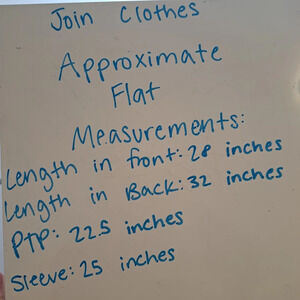 Join Clothes
Approximate
Flat
Measurements:
Length in front: 28 inches
Length in Back: 32 inches
PTP: 22.5 inches
Sleeve: 25 inches